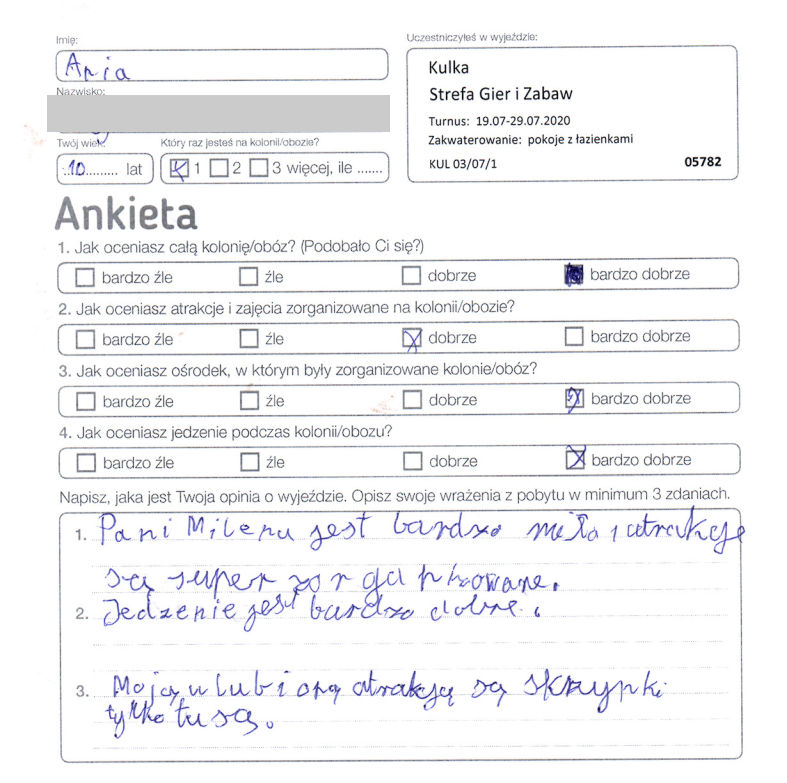 Imię:
Ania
Uczestniczyłeś w wyjeździe:
Kulka
Strefa Gier i Zabaw
Turnus: 19.07-29.07.2020
Zakwaterowanie: pokoje z łazienkami
KUL 03/07/1 05782
Nazwisko:
Twój wiek: Który raz jesteś na kolonii/obozie?
10 lat 1 2 3 więcej, ile .......
Ankieta
1. Jak oceniasz całą kolonię/obóz? (Podobało Ci się?)
bardzo źle źle dobrze bardzo dobrze
2. Jak oceniasz atrakcje i zajęcia zorganizowane na kolonii/obozie?
bardzo źle źle dobrze bardzo dobrze
3. Jak oceniasz ośrodek, w którym były zorganizowane kolonie/obóz?
bardzo źle źle dobrze bardzo dobrze
4. Jak oceniasz jedzenie podczas kolonii/obozu?
bardzo źle źle dobrze bardzo dobrze
Napisz, jaka jest Twoja opinia o wyjeździe. Opisz swoje wrażenia z pobytu w minimum 3 zdaniach.
1. Pani Milena jest bardzo miła i atrakcje
są super zorganizowane.
2. Jedzenie jest bardzo dobre.
3. Moją ulubioną atrakcją są skrzypki
tylko tu są.